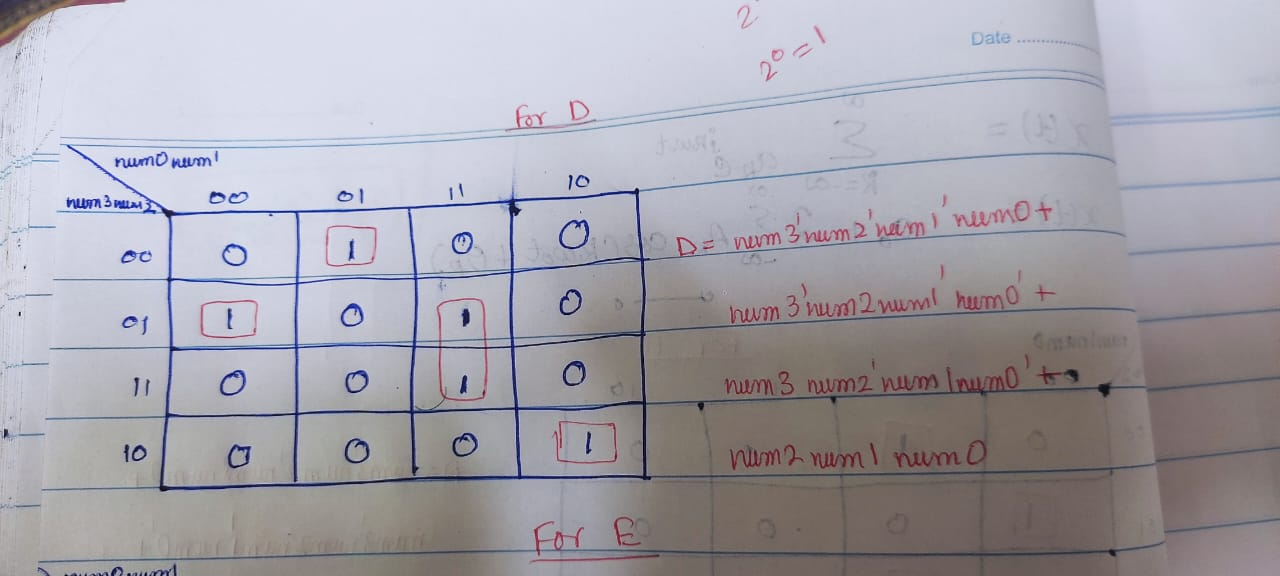 2
2⁰ = 1
Date
For D
num0 num1
num3 num2
00 01 11 10
00 0 1 0 0
01 1 0 1 0
11 0 0 1 0
10 0 0 0 1
D = num3'num2'num1'num0 +
num3'num2num1'num0' +
num3 num2'num1num0' +
num2 num1 num0
For E
num0num1